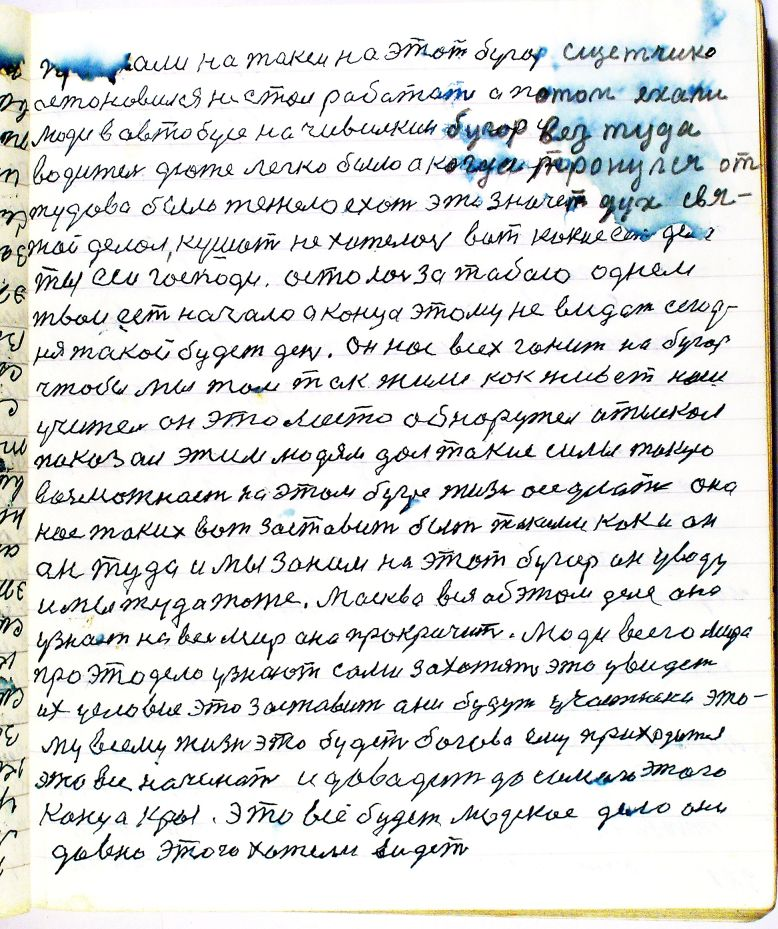 на такси на этот бугор сщетчико
астоновился нистол работат а потом ехали
люди в автобусе на чивилкин бугор вез туда
водител доже легко было а когда тронулся от
тудова было тежело ехат это значет дух свя-
той делол, кушат не хотелос вот какие сат дела
ты єси господи. остолос за табою однем
твои ест начало а конца этому не видат сегод-
ня такой будет ден. он нас всех гонит на бугор
чтобы мы там так жили как живет наш
учител он это место обноружел отыскол
показал этим людям дал такие силы такую
вазможнаст на этом бугре жизн оседлат она
нас таких вот заставит быт такими как и он
ан туда и мы за ним на этот бугор он уводу
и мы туда тоже. Масква вся об этом деле она
узнает на вес мир она прокричит. Люди всего мира
про это дело узнают сами захотят это увидет
их условие это заставит они будут участники это-
му всему жизн это будет богова ему приходится
это все начинат и довадит до самого этого
конца кры. Это всё будет людское дело они
давно этого хотели видет